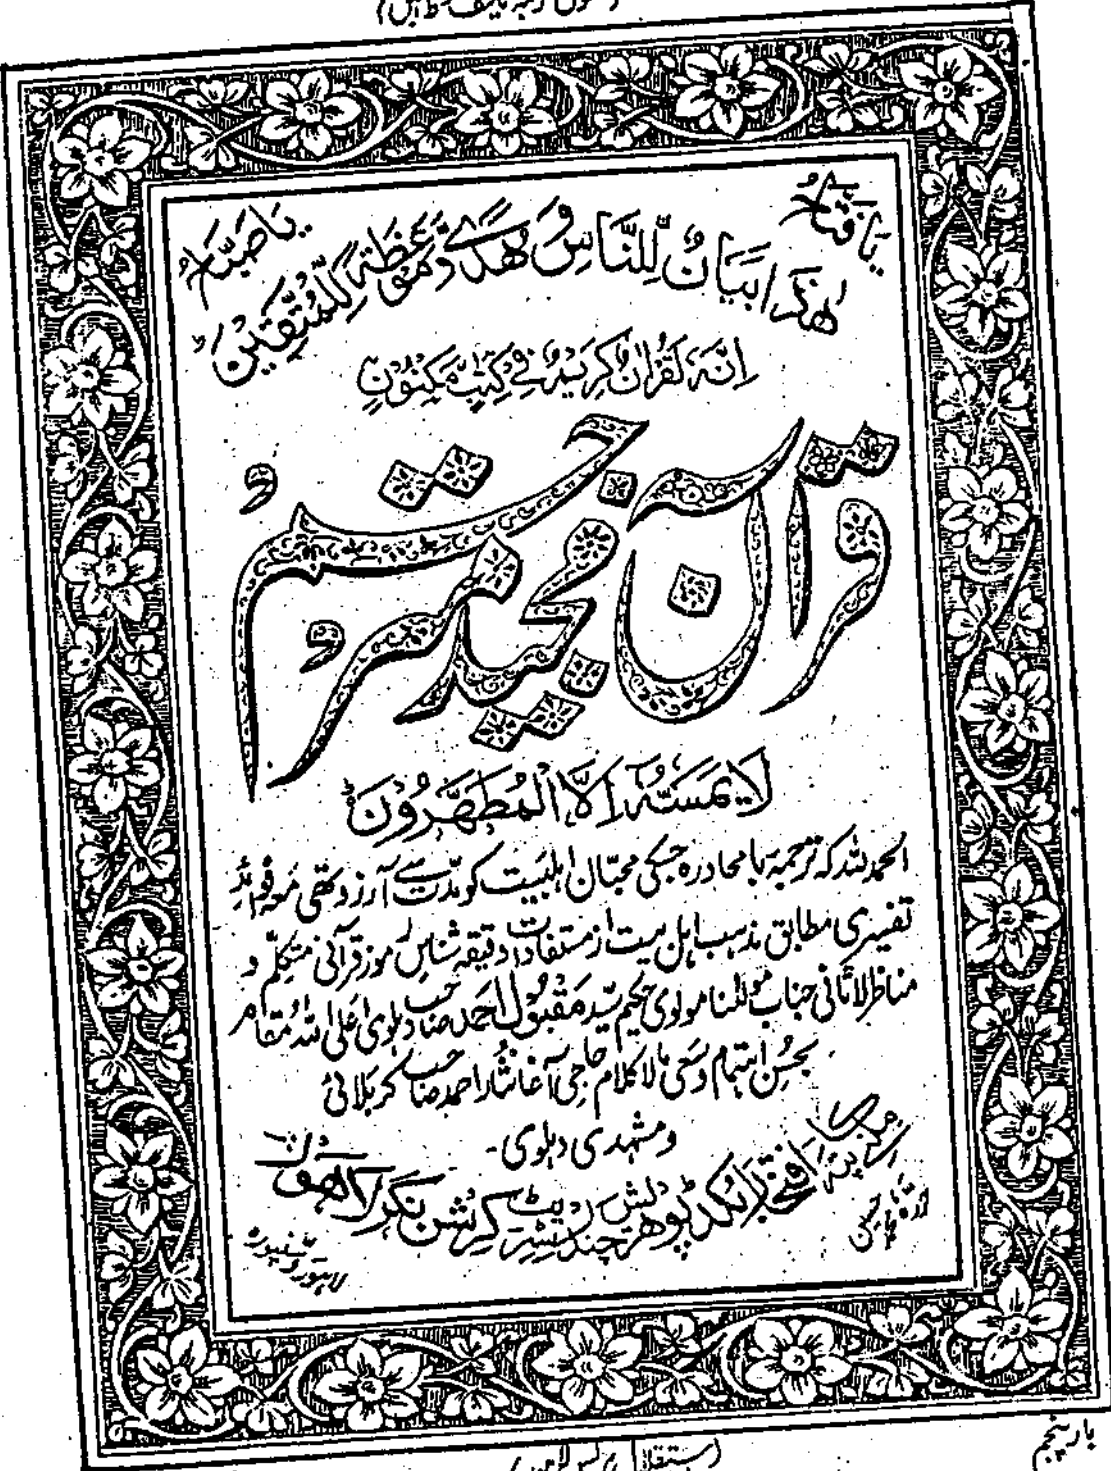 یا فتاح
یا صباح
هٰذَا بَيَانٌ لِّلنَّاسِ وَ هُدًى وَّ مَوْعِظَةٌ لِّلْمُتَّقِيْنَ
اِنَّهٗ لَقُرْاٰنٌ كَرِيْمٌ فِيْ كِتٰبٍ مَّكْنُوْنٍ
قرآن مجید مترجم
لَا يَمَسُّهٗٓ اِلَّا الْمُطَهَّرُوْنَ ط
الحمد للہ کہ ترجمہ با محاورہ جسکی محبّان اہلبیت کو مدّت سے آرزو تھی مَعہ فوائدِ
تفسیری مطابق مذہب اہل بیت از دقیقہ شناسِ رموز قرآنی متکلّم و
مناظر لاثانی جناب مولٰنا مولوی حکیم سیّد مَقبُول احمد صاحب دہلوی اعلی اللہ مقامہ
بحُسنِ اہتمام و سَعی بالا کلام حاجی آغا نثار احمد صاحب کربلائی
و مشہدی دہلوی۔
افتخار بکڈپو ہرچند سٹریٹ کرشن نگر لاہور
بار پنجم